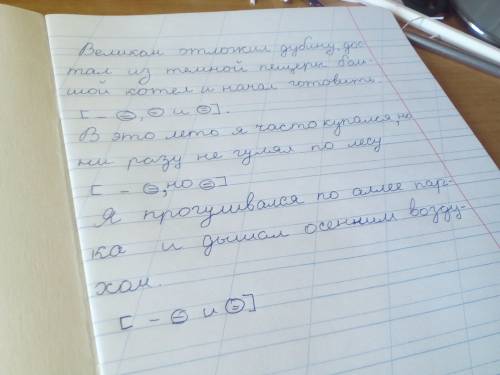 Великан отложил дубину, дос-
тал из темной пещеры боль-
шой котел и начал готовить.
[ – ⊜, ⊜ и ⊜ ].
В это лето я часто купался, но
ни разу не гулял по лесу
[ – ⊜, но ⊜ ]
Я прогуливался по аллее пар-
ка и дышал осенним возду-
хом.
[ – ⊜ и ⊜ ]